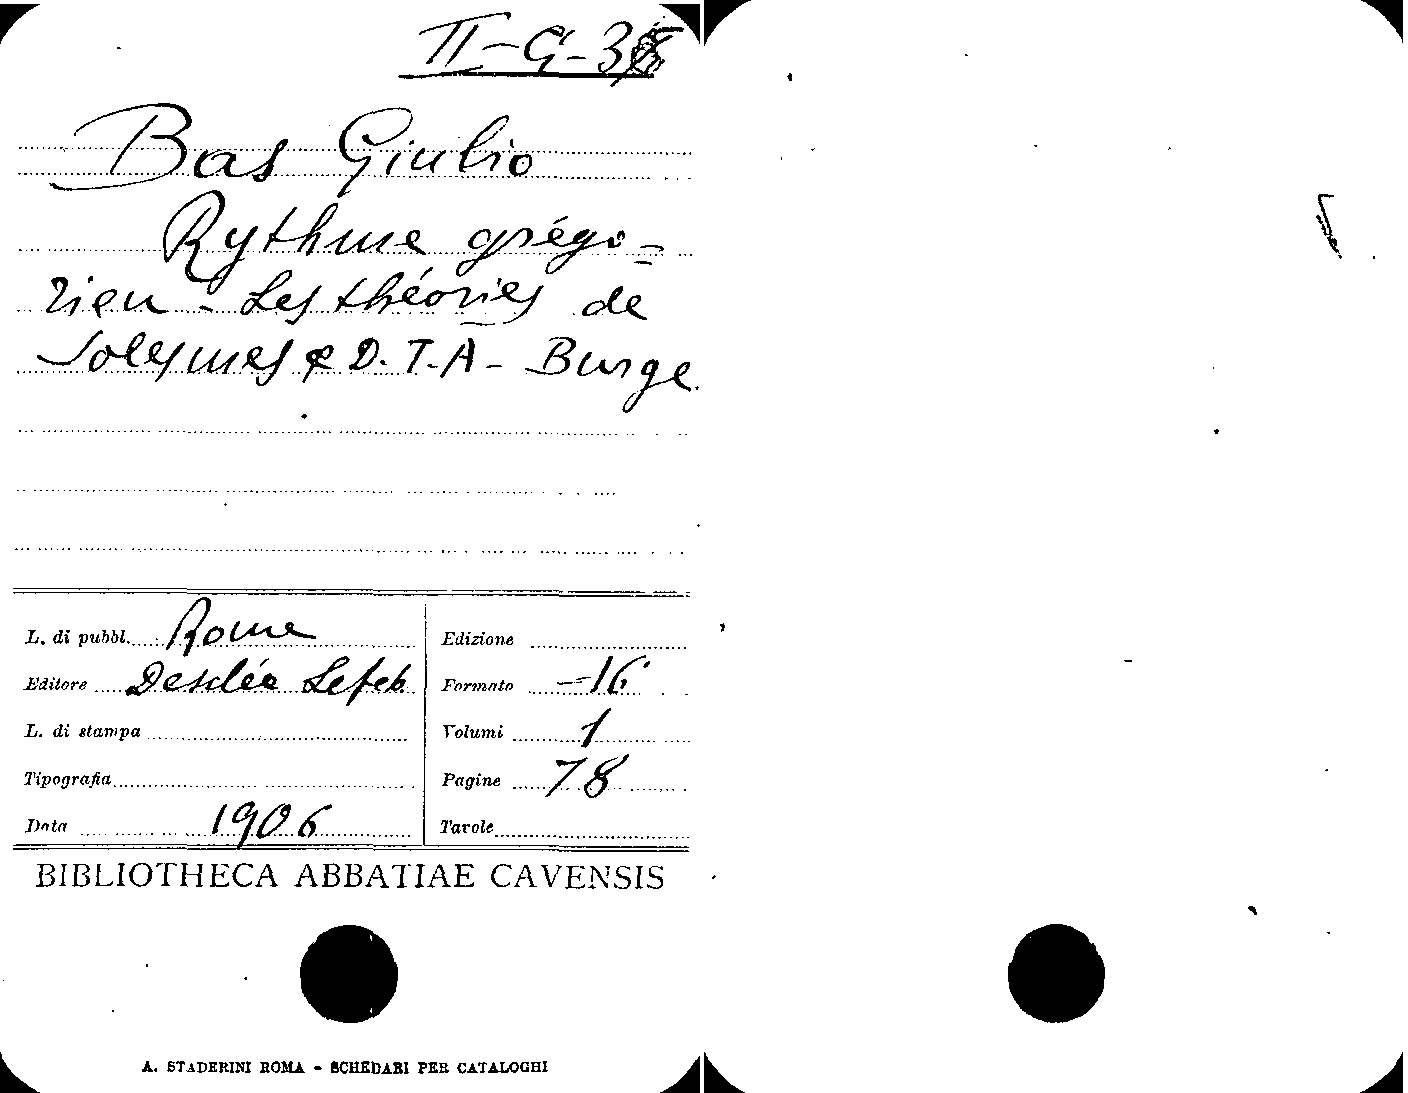 II-G-3
Bas Giulio
Rythme grégo=
rien - Les théories de
Solesmes & D.T.A- Burge
L. di pubbl. Rome
Editore Desclée Lefeb
L. di stampa
Tipografia
Data 1906
Edizione
Formato -16°
Volumi 1
Pagine 78
Tavole
BIBLIOTHECA ABBATIAE CAVENSIS
A. STADERINI ROMA - SCHEDARI PER CATALOGHI